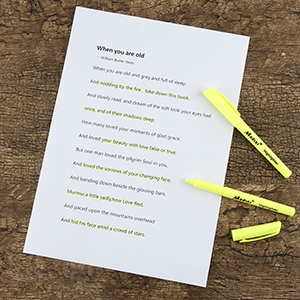 When you are old
-- William Butler Yeats
When you are old and grey and full of sleep,
And nodding by the fire, take down this book,
And slowly read, and dream of the soft look your eyes had
once, and of their shadows deep;
How many loved your moments of glad grace,
And loved your beauty with love false or true,
But one man loved the pilgrim Soul in you,
And loved the sorrows of your changing face;
And bending down beside the glowing bars,
Murmur,a little sadly,how Love fled,
And paced upon the mountains overhead
And hid his face amid a crowd of stars.